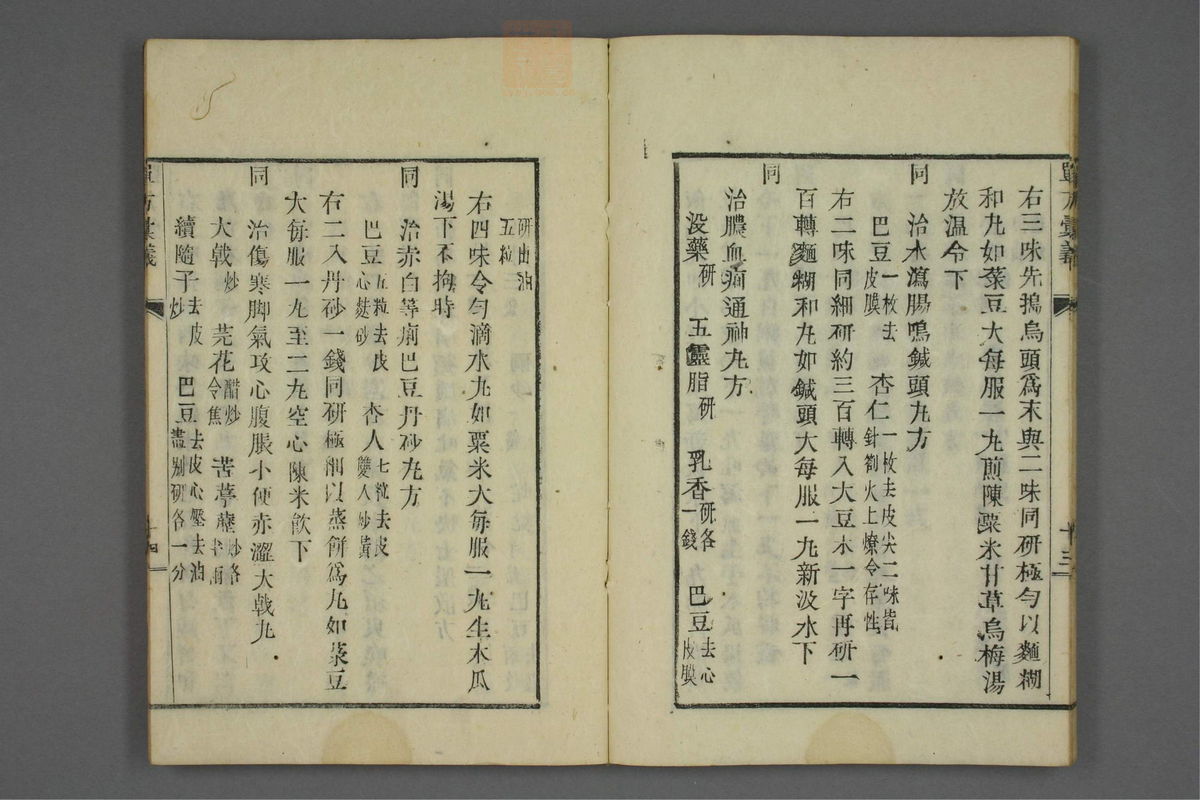 右三味先搗烏頭爲末與二味同研極勻以麵糊
和丸如菉豆大每服一丸煎陳粟米甘草烏梅湯
放溫令下
同 治水瀉腸鳴鍼頭丸方
巴豆一枚去皮膜 杏仁一枚去皮尖二味皆針劄火上燎令存性
右二味同細研約三百轉入大豆末一字再研一
百轉麵糊和丸如鍼頭大每服一丸新汲水下
同 治膿血痢通神丸方
没藥研 五靈脂研 乳香研各一錢 巴豆去心皮膜
研出油五粒
右四味令勻滴水丸如粟米大每服一丸生木瓜
湯下不拘時
同 治赤白等痢巴豆丹砂丸方
巴豆五粒去皮心麩炒 杏人七粒去皮雙人炒黃
右二入丹砂一錢同研極細以蒸餅爲丸如菉豆
大每服一丸至二丸空心陳米飲下
同 治傷寒脚氣攻心腹脹小便赤澀大戟丸
大戟炒 芫花醋炒令焦 苦葶藶炒各半兩
續隨子去皮炒 巴豆去皮心壓去油盡别研各一分
單方彙義
十三
單方彙義
十四